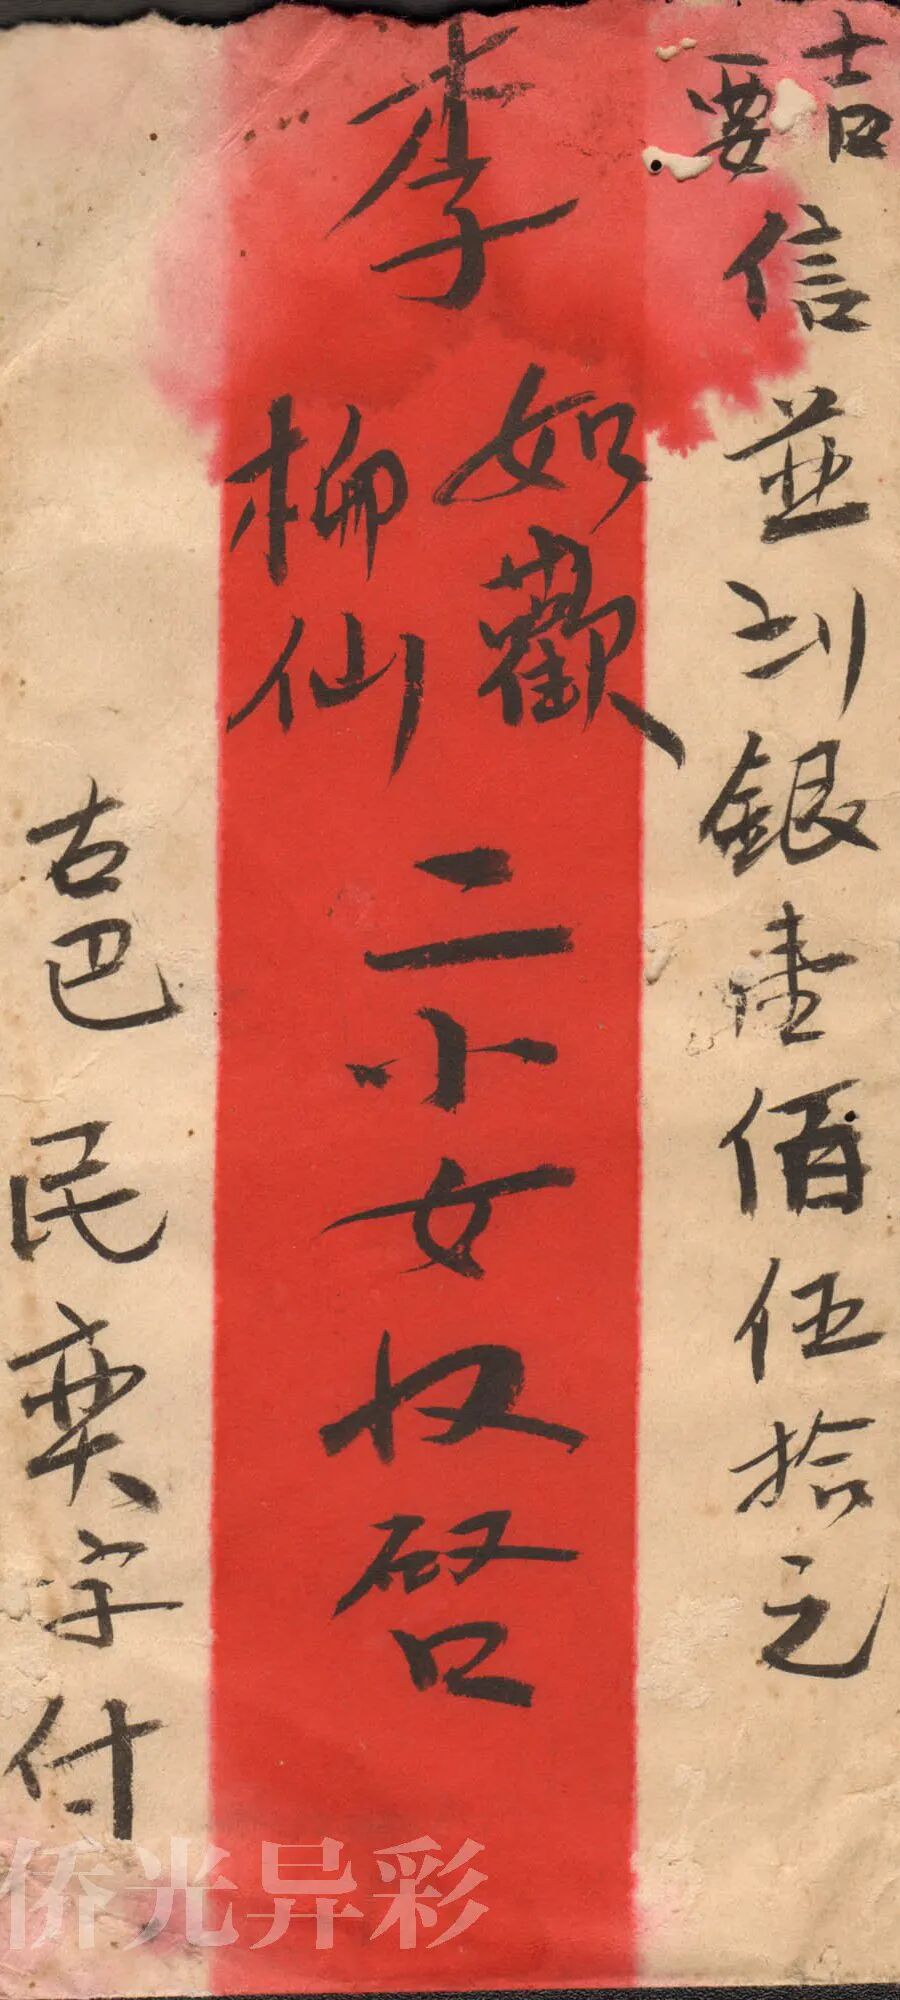 吉
要
信並到銀壹佰伍拾元
李
如歡
柳仙
二小女收啓
古巴民奕字付
侨光异彩